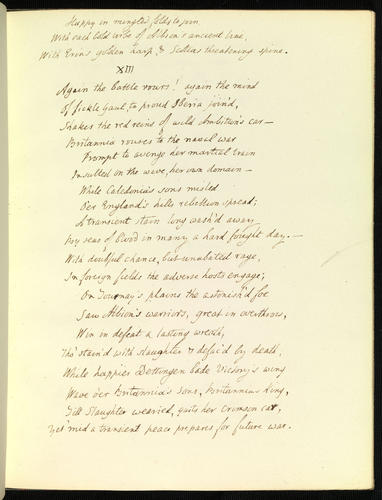 Happy in mingled folds to join
With each bold wave of Albion's ancient line,
With Erin's golden harp, & Scotia's threatening spine.
XIII
Again the battle roars! again the mind
Of fickle Gaul, to proud Iberia join'd,
Shakes the red reins of wild Ambition's car—
Britannia rouses to the naval war
Prompt to avenge her martial train
Insulted on the wave, her own domain—
While Caledonia's sons misled
O'er England's hills rebellion spread;
A transient stain long wash'd away
By seas of blood in many a hard fought day.—
With doubtful chance, but unabated rage,
In foreign fields the adverse hosts engage;
On Tournay's plains the astonish'd foe
Saw Albion's warriors, great in overthrow,
Win in defeat a lasting wreath,
Tho' stain'd with slaughter & defac'd by death,
While happier Dettingen bade Victory's wing
Wave o'er Britannia's sons, Britannia's King,
Till Slaughter wearied, quits her crimson car,
Yet 'mid a transient peace prepares for future war.